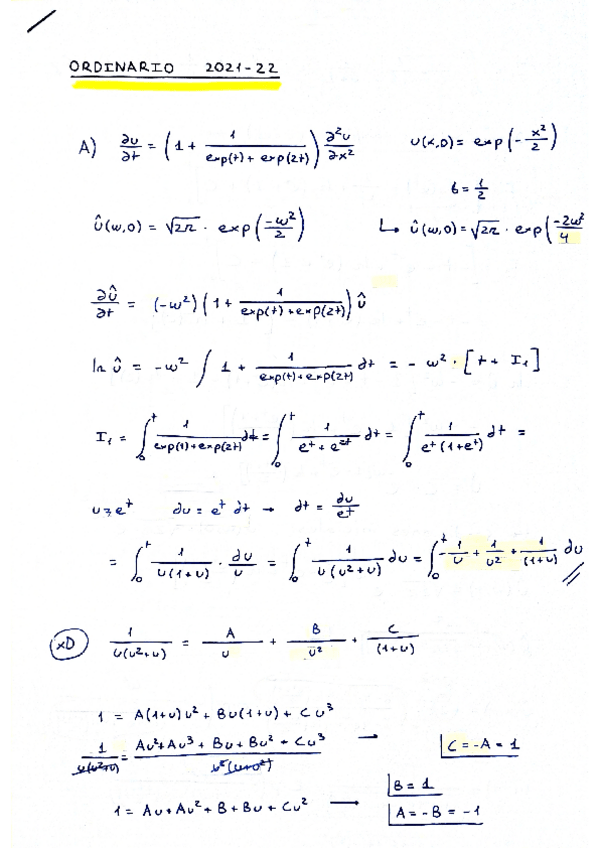 ORDINARIO 2021-22
A) ∂u/∂t = (1 + 1/(exp(t) + exp(2t))) ∂²u/∂x² u(x,0) = exp(-x²/2)
b = 1/2
û(w,0) = √2π · exp(-w²/2) ↳ û(w,0) = √2π · exp(-2w²/4
∂û/∂t = (-w²) (1 + 1/(exp(t) + exp(2t))) û
ln û = -w² ∫ 1 + 1/(exp(t) + exp(2t)) dt = - w² · [t + I₁]
I₁ = ∫₀ᵗ 1/(exp(t) + exp(2t)) dt = ∫₀ᵗ 1/(eᵗ + e²ᵗ) dt = ∫₀ᵗ 1/(eᵗ(1+eᵗ)) dt =
u = eᵗ du = eᵗ dt → dt = du/eᵗ
= ∫₀ᵗ 1/(u(1+u)) · du/u = ∫₀ᵗ 1/(u(u²+u)) du = ∫₀ᵗ -1/u + 1/u² + 1/(1+u) du //
xD 1/(u(u²+u)) = A/u + B/u² + C/(1+u)
1 = A(1+u)u² + Bu(1+u) + Cu³
1/(u(u²+u)) = (Au² + Au³ + Bu + Bu² + Cu³)/(u²(u+u²)) → C = -A = 1
B = 1
1 = Au + Au² + B + Bu + Cu² → A = -B = -1